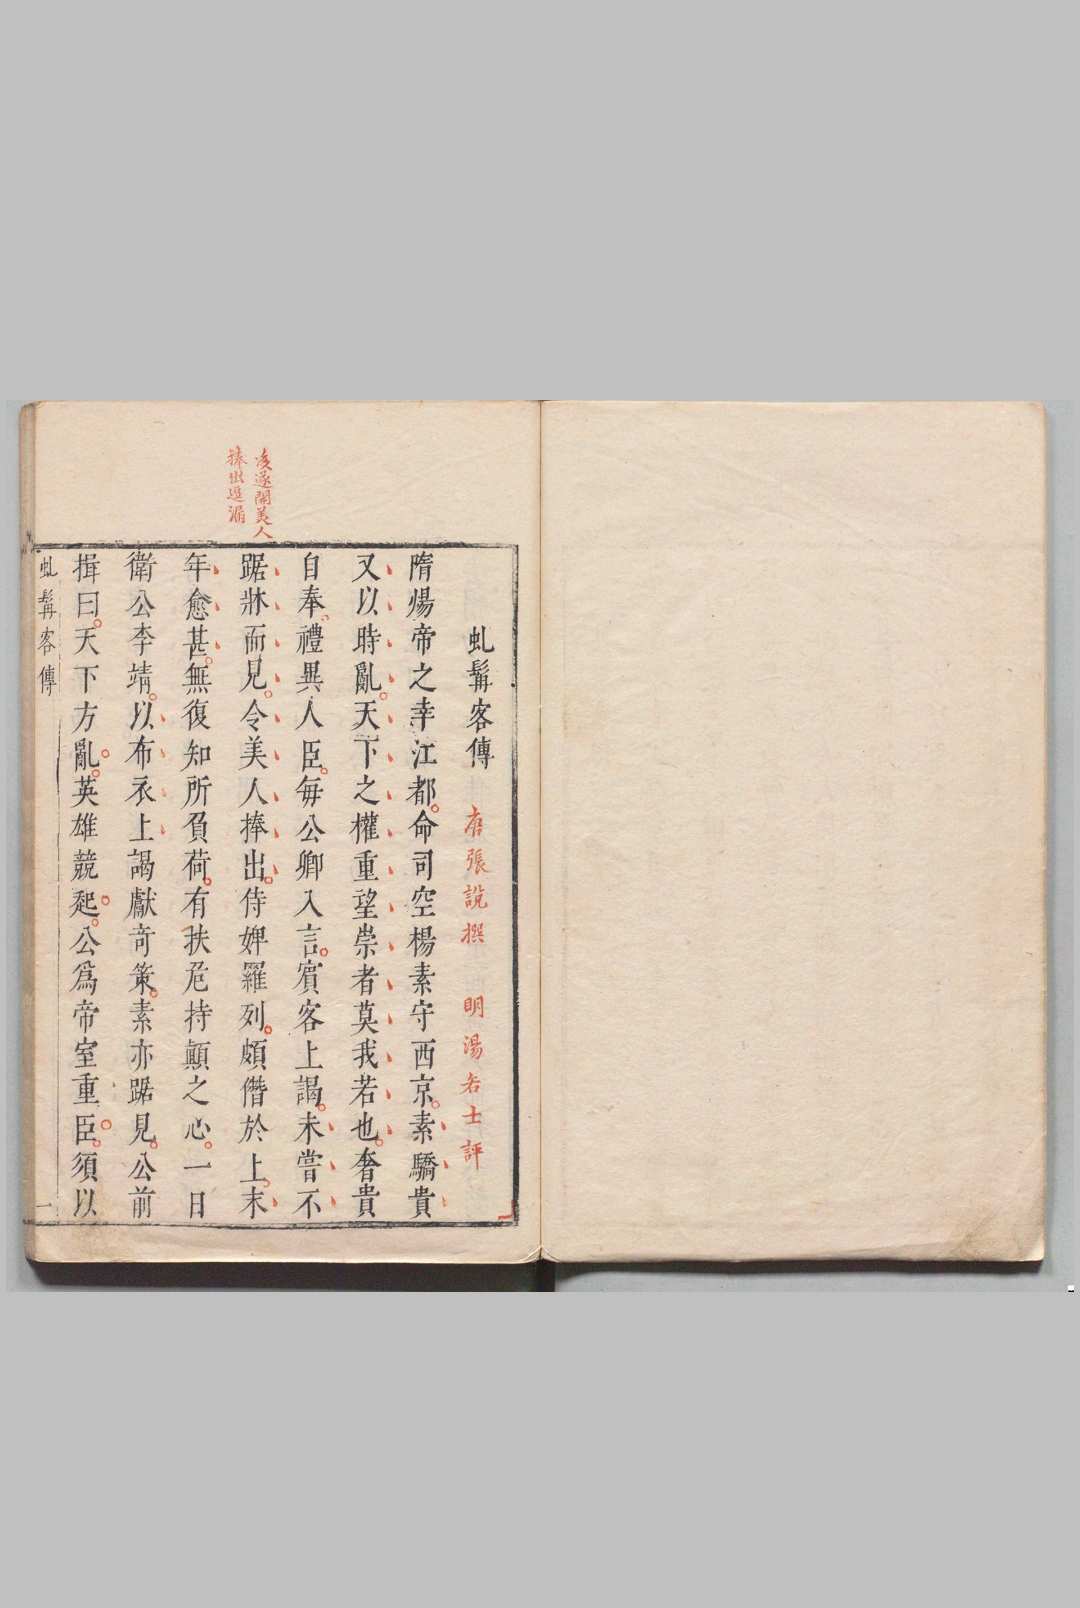 虬髯客傳 唐張說撰 明湯若士評
隋煬帝之幸江都。命司空楊素守西京。素驕貴
又以時亂。天下之權重望崇者莫我若也。奢貴
自奉。禮異人臣。每公卿入言。賓客上謁。未嘗不
踞牀而見。令美人捧出。侍婢羅列。頗僭於上。末
年愈甚。無復知所負荷。有扶危持顛之心。一日
衛公李靖。以布衣上謁獻奇策。素亦踞見。公前
揖曰。天下方亂。英雄競起。公爲帝室重臣。須以
遂開美人
捧出逗漏
虬髯客傳 一